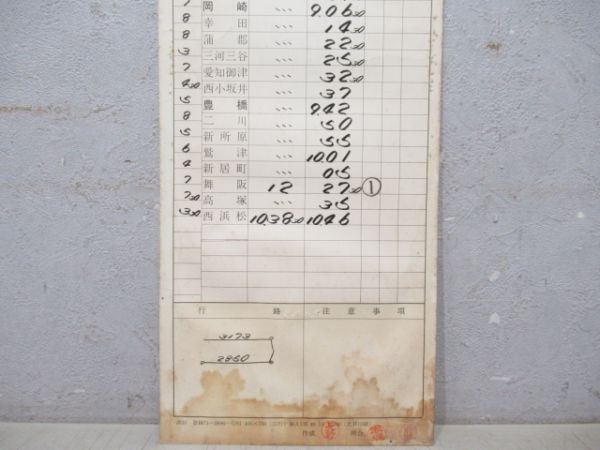 7 岡崎 … 9.06 30
8 幸田 … 14 30
8 蒲郡 … 22 30
3 三河三谷 … 25 30
7 愛知御津 … 32 30
4 30 西小坂井 … 37
5 豊橋 … 9.42
8 二川 … 50
5 新所原 … 55
6 鷲津 … 10.01
4 新居町 … 05
7 舞阪 12 27 30 ①
7 30 高塚 … 35
3 30 西浜松 10.38 30 10.46
行路 注意事項
3173
2850
作成